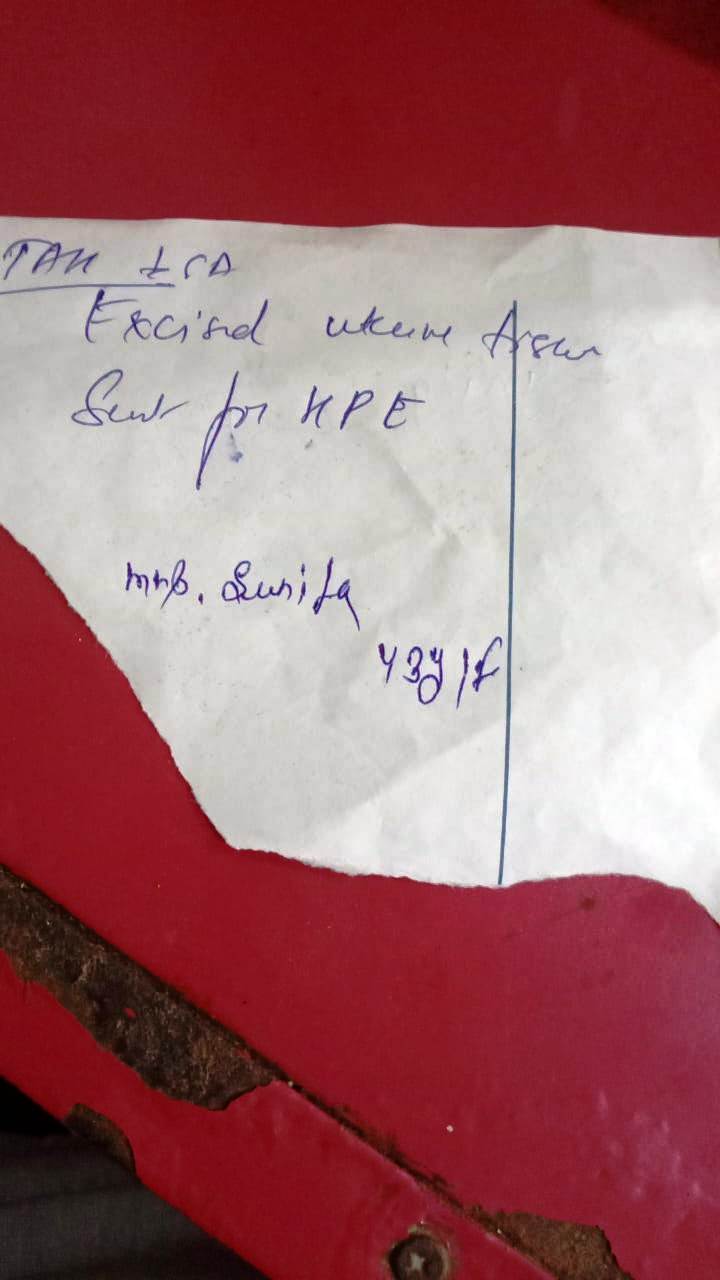 TAH
Excised uterine tissue
Sent for HPE
mrs. Sunita
43y/f